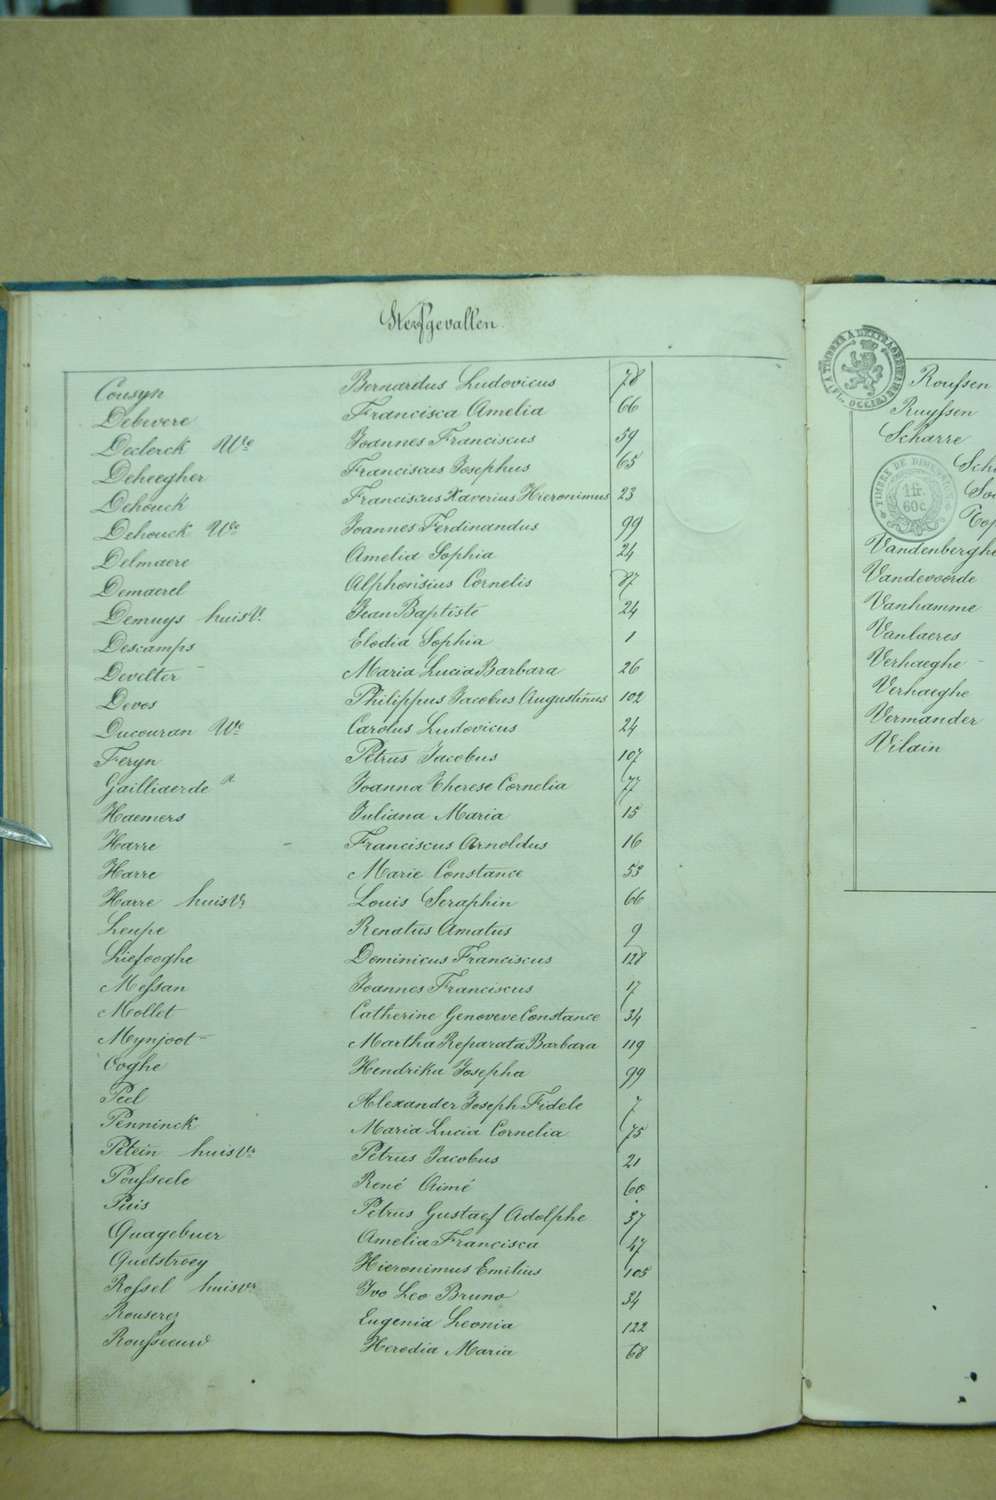 Sterfgevallen
Cousyn Bernardus Ludovicus 78
Debwere Francisca Amelia 66
Declerck Wwe Joannes Franciscus 59
Deheegher Franciscus Josephus 65
Dehouck Franciscus Xaverius Hieronimus 23
Dehouck Wwe Joannes Ferdinandus 99
Delmaere Amelia Sophia 24
Demaerel Alphonsius Cornelis 87
Demuys huisvr Jean Baptiste 24
Descamps Elodia Sophia 1
Develter Maria Lucia Barbara 26
Devos Philippus Jacobus Augustinus 102
Ducouran We Carolus Ludovicus 24
Feryn Petrus Jacobus 107
Gailliaerde Joanna Therese Cornelia 77
Haemers Juliana Maria 15
Harre Franciscus Arnoldus 16
Harre Marie Constance 53
Harre huisvr Louis Seraphin 66
Leupe Renatus Amatus 9
Liefooghe Dominicus Franciscus 128
Messan Joannes Franciscus 17
Mollet Catherine Genoveve Constance 34
Mynjoot Martha Reparata Barbara 119
Ooghe Hendrika Josepha 99
Peel Alexander Joseph Fidele 7
Penninck Maria Lucia Cornelia 75
Pitein huisvr Petrus Jacobus 21
Pousseele René Aimé 60
Puis Petrus Gustaef Adolphe 37
Quagebuer Amelia Francisca 47
Quetstroey Hieronimus Emilius 105
Rossel huisvr Ivo Leo Bruno 34
Rouserez Eugenia Leonia 122
Rousseeuw Herodia Maria 68
TIMBRE A L'EXTRAORDINAIRE
TIMBRE DE DIMENSION
1 fr. 60 c.
Roussen
Ruyssen
Scharre
Vandenberghe
Vandevoorde
Vanhamme
Vanlaeres
Verhaeghe
Verhaeghe
Vermander
Vilain